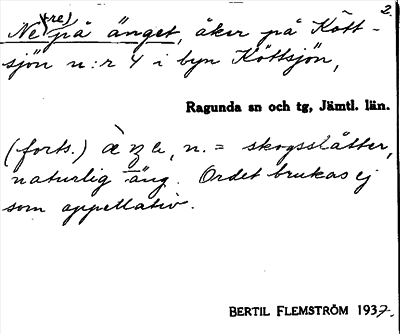 2.
Ne(re) på änget, åker på Kött-
sjön n:r 4 i byn Köttsjön,
Ragunda sn och tg, Jämtl. län.
(forts.) n. = skogsslåtter,
naturlig äng. Ordet brukas ej
som appellativ.
BERTIL FLEMSTRÖM 1937.